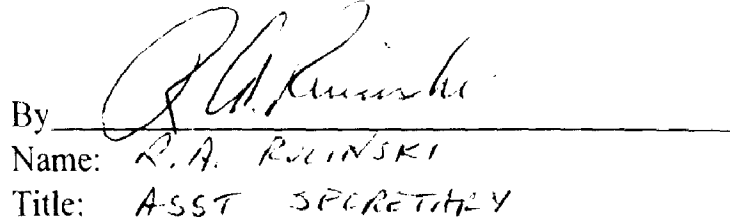 By R.A. Rucinski
Name: R.A. RUCINSKI
Title: ASST SECRETARY